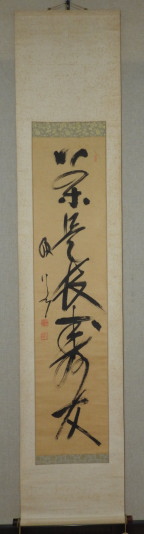 茶是長壽友